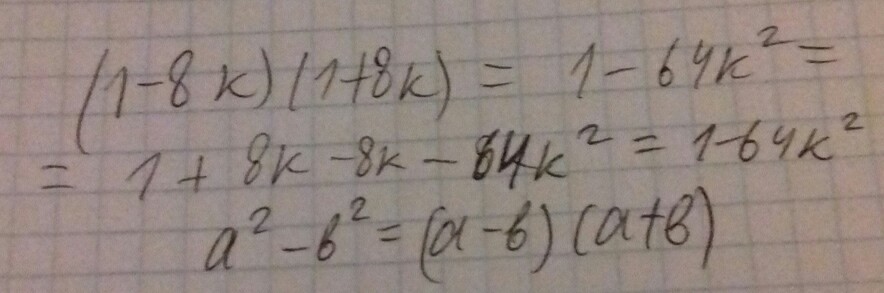 (1-8k)(1+8k) = 1-64k² =
= 1 + 8k -8k - 64k² = 1-64k²
a² - b² = (a-b)(a+b)